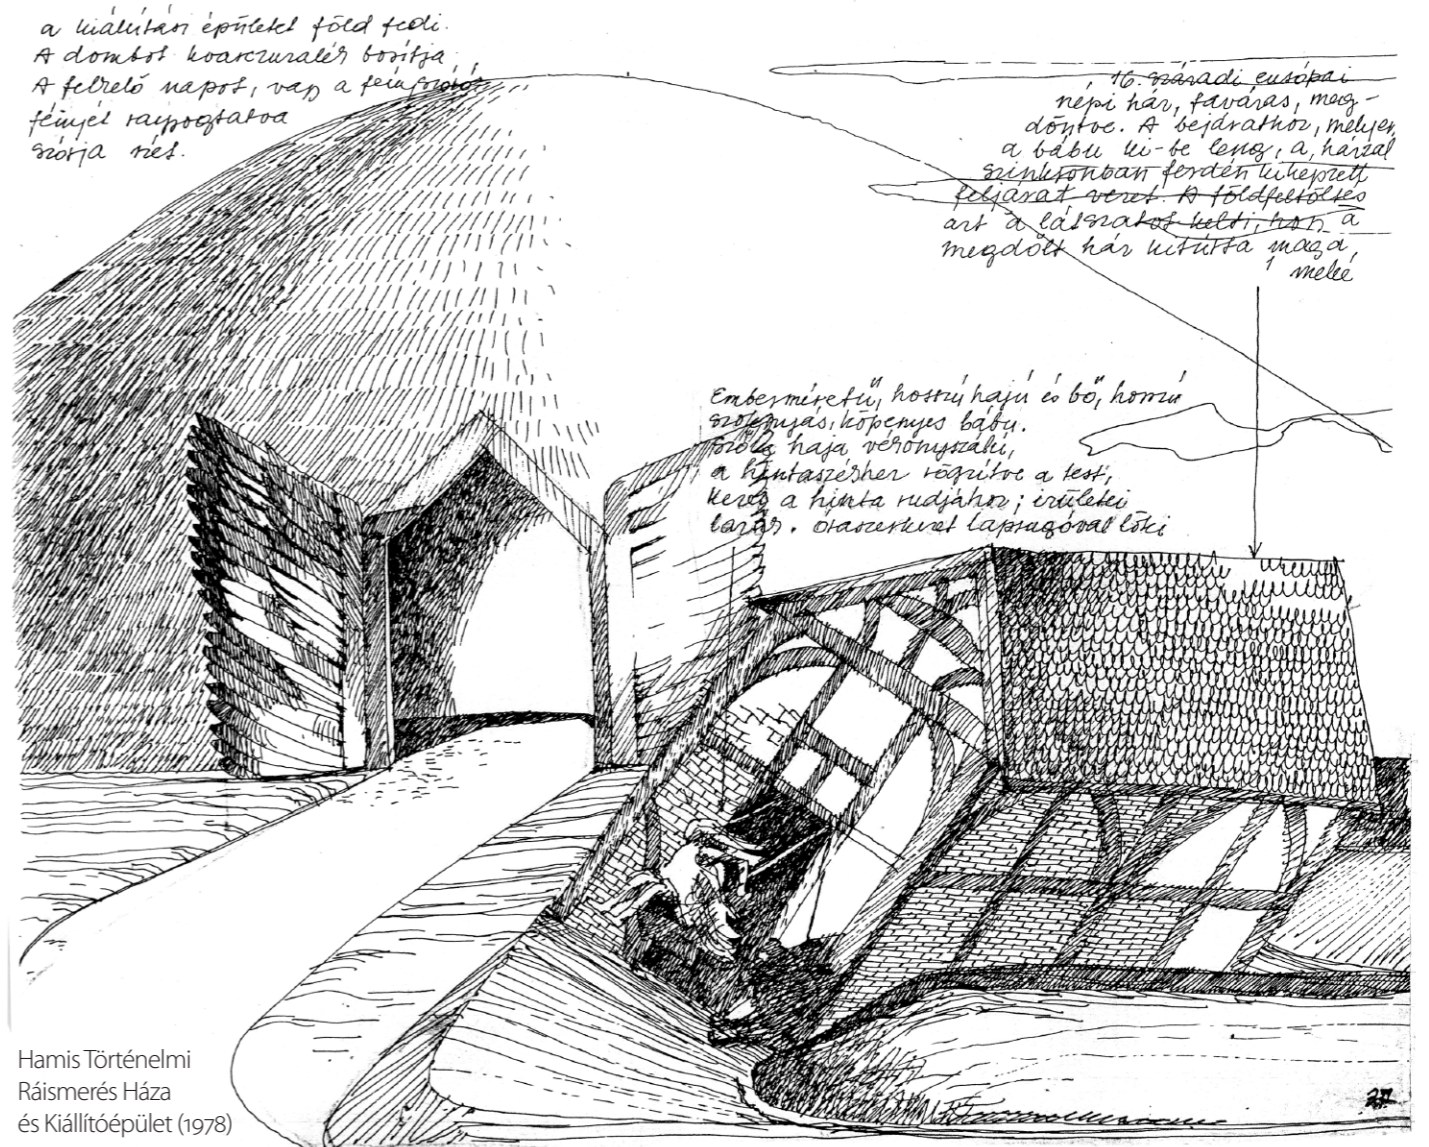 a kiállítási épületet föld fedi.
A dombot kvarczuzalék borítja
A felkelő napot, vagy a fényszórós
fényét ragyogtatva
szórja szét.
16. századi európai
népi ház, favázas, meg-
döntve. A bejárathoz, melyen
a bábu ki-be leng, a házzal
szinkronban ferdén kiképzett
feljárat vezet. A földfeltöltés
azt a látszatot kelti, hogy a
megdőlt ház kitúrta maga
mellé
Emberméretű, hosszú hajú és bő, hosszú
szoknyás, köpenyes bábu.
haja vékonyszálú,
a hintaszékhez rögzítve a test,
keze a hinta rudjához; ízületei
lazák. óraszerkezet laprugóval löki
Hamis Történelmi
Ráismerés Háza
és Kiállítóépület (1978)